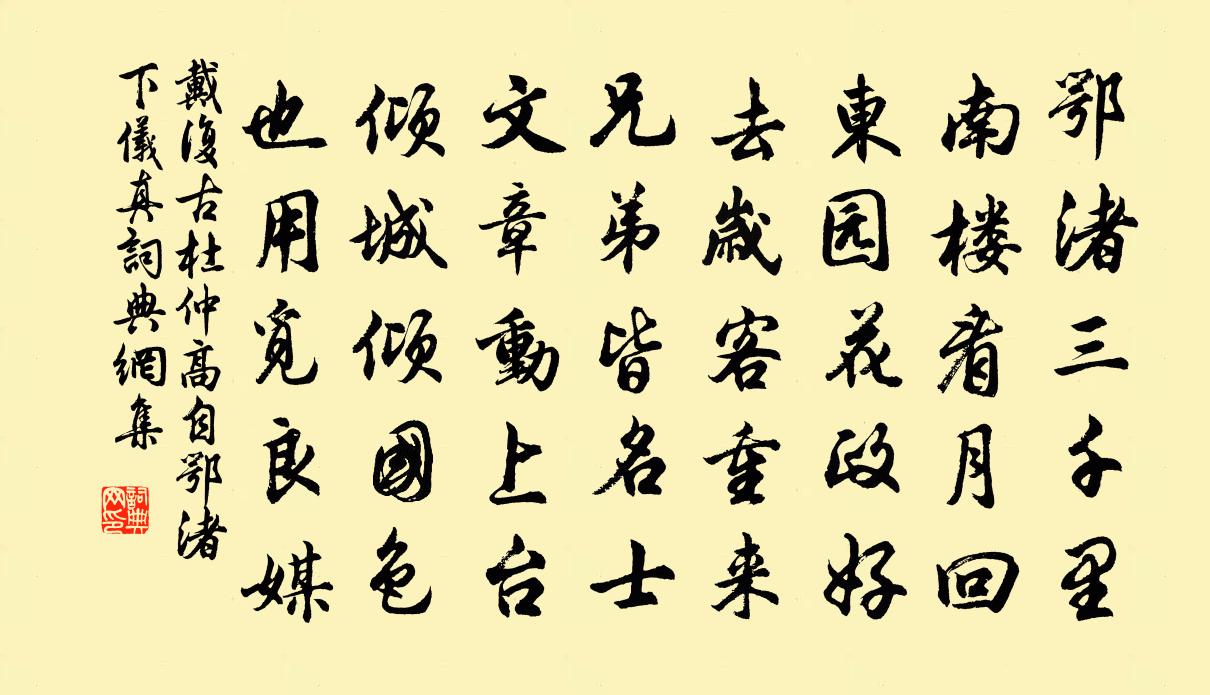 鄂渚三千里
南楼看月回
東园花政好
去歲客重来
兄弟皆名士
文章動上台
傾城傾國色
也用覓良媒
戴復古杜仲高自鄂渚
下儀真詞典網集
詞典
网印